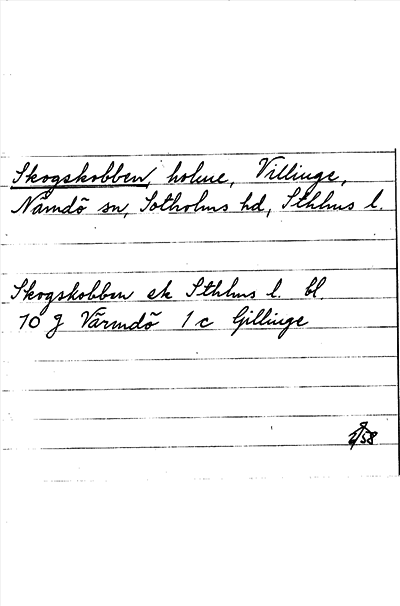 Skogskobben, holme, Villinge,
Nämdö sn, Sotholms hd, Sthlms l.
Skogskobben ek Sthlms l. bl.
10 J Värmdö 1 c Gillinge
/58